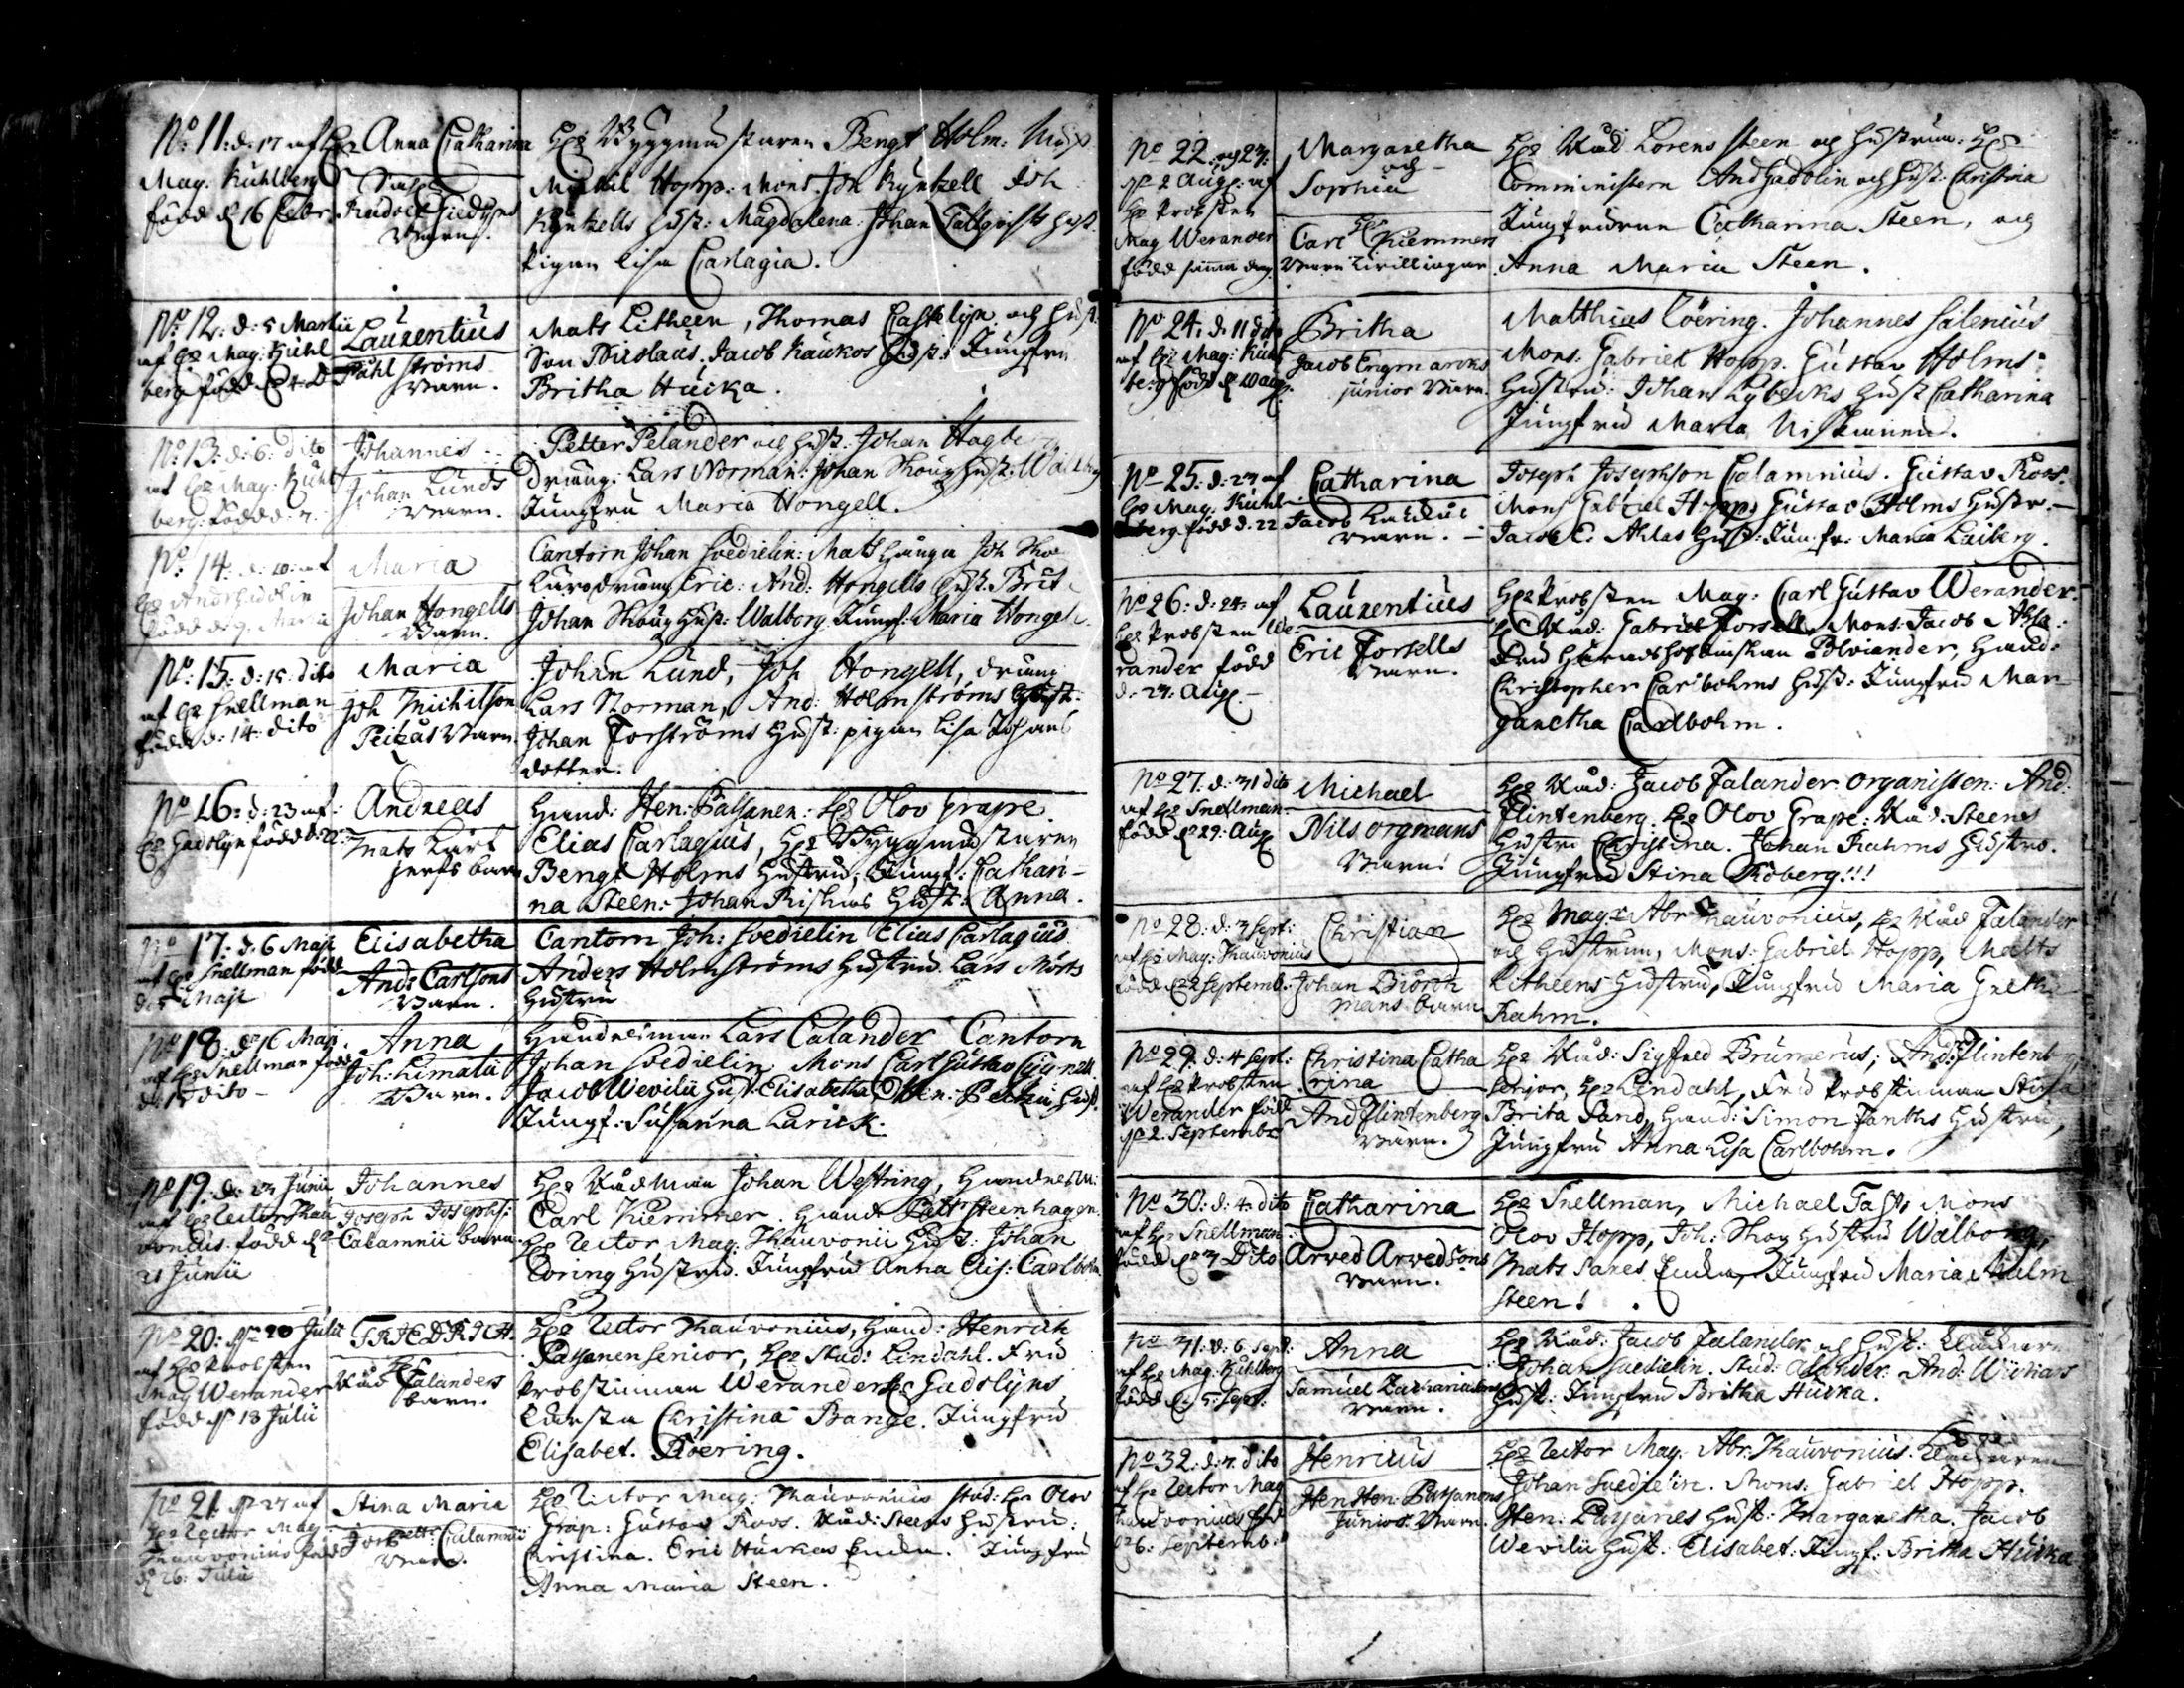 No: 11: d. 17 af Hr
Mag. Kuhlberg
född d 16 Febr.
Anna Catharina
Barn.
Hr Byggmästaren Bengt Holm.
Michel Hopp: Mons. Joh Kyntzell Joh
Kyntzells Hust: Magdalena. Johan Tallqvists Hust.
Pigan Lisa Carlagia.
No: 12: d: 5 Martii
af Hr Mag: Kuhl
berg född d 4. D
Laurentius
Påhl Ströms
Barn.
Mats Litheen, Thomas Castelijn och Hust.
Son Nicolaus. Jacob Kaukos Hust: Jungfru
Britha Hucka.
No: 13: d: 6: dito
af Hr Mag: Kuhl
berg: född d.
Johannes
Johan Lunds
Barn.
Petter Pelander och Hust: Johan Hagberg
dräng: Lars Norman: Johan Skoug Hust: Walborg
Jungfru Maria Hongell.
No: 14: d: 10: af
Hr And: Gadolin
född d 9. Martii
Maria
Johan Hongells
Barn.
Cantorn Johan Svedielin: Mats Hånga Joh Sko
dräng Eric: And: Hongells Hust. Brit
Johan Skoug Hust: Walborg. Jungf: Maria Hongel
No: 15: d: 15: dito
af Hr Snellman
född d: 14: dito
Maria
Joh Michilson
Peitzås Barn.
Johan Lund, Joh Hongell, dräng
Lars Norman, And: Holmströms Hust:
Johan Forströms Hust: pigan Lisa Johans
dotter.
No 16: d: 23 af:
Hr Gadolijn född d. 22:
Andreas
Mats Kärt
jerfs barn
Hand: Hen: Paysanen: Hr Olov Grape
Elias Carlagius, Hr Byggmästaren
Bengt Holms Hustru; Jungf: Cathari-
na Steen: Johan Riskas Hust: Anna.
No 17. d. 6 Maji
af Hr Snellman född
d: 5 Maji
Elisabetha
And: Carlsons
Barn.
Cantorn Joh: Svedielin Elias Carlagius
Anders Holmströms Hustru. Lars Mörts
Hustru
No 18: d 16 Maji.
af Hr Snellman född
d: 15 dito -
Anna
Joh: Limatii
Barn.
Handelsman Lars Calander Cantorn
Johan Svedielin Mons Carl Gustav Cygnell.
Jacob Wevilii Hust. Elisabetha Hen: Peitzii Hust.
Jungf: Susanna Larick.
No 19: d: 23 Junii
af Hr Rector Thau
vonius. född d
21 Junii
Johannes
Joseph Josephs:
Calamnii barn.
Hr Rådman Johan Westring, Handelsm:
Carl Kiemmer. Hand Pett Steenhagen.
Hr Rector Mag: Thauvonii Hust: Johan
Löring Hustru. Jungfru Anna Elis: Carlbohm.
No 20: d 20 Julii
af Hr Probsten
Mag Werander
född d 18 Julii
FRIEDRICH.
Råd Hr Falanders
barn.
Hr Rector Thauvonius, Hand: Henrich
Paysanen senior, Hr Stud: Lindahl. Fru
Probstinnan Werander Hr Gadolijns
Kärsta Christina Bange. Jungfru
Elisabet. Röering.
No 21. d 27 af
Hr Rector Mag:
Thauvonius född
d 26: Julii
Stina Maria
Jos: Calamnii
Barn.
Hr Rector Mag: Thauvonius Stud: Hr Olov
Grap: Gustav Roos. Råd: Steens Hustru:
Christina. Eric Huckas Enka. Jungfru
Anna Maria Steen.
No 22: og 23:
d 2 Aug: af
Hr Probsten
Mag Werander
född samma dag.
Margaretha
och
Sophia
Carl Hr Kiemmers
Barn Tvillingar
Hr Råd Lorens Steen og Hustrun. Hr
Comministern And Gadolin och Hust: Christina
Jungfrurna Catharina Steen, och
Anna Maria Steen.
No 24: d. 11 dito
af Hr Mag: Kuhl
berg född d 10 aug.
Britha
Jacob Engmarcks
junior Barn.
Matthias Löering. Johannes Salenius
Mons: Gabriel Hopp. Gustav Holms
Hustru: Johan Lybecks Hust Catharina
Jungfru Maria Niskanen.
No 25: d: 23 af
Hr Mag. Kuhl
berg född d. 22
Catharina
Jacob
Barn. -
Joseph Josephson Calamnius. Gustav Roos.
Mons Gabriel Hopp; Gustav Holms Hustr. -
Jacob E: Ahlas Hust: Jun: fr: Maria Laiberg.
No 26: d: 24: af
Hr Probsten We-
rander född
d: 23: Aug. -
Laurentius
Eric Forsells
Barn.
Hr Probsten Mag: Carl Gustav Werander.
Hr Råd: Gabriel Forsell. Mons: Jacob Ahla:
Fru Häradshöfdinskan Polviander, Hand:
Christopher Carlbohms Hust: Jungfru Mar-
garetha Carlbohm.
No 27. d. 31 dito
af Hr Snellman.
född d 29: Aug
Michael
Nils orgmans
Barn.
Hr Råd: Jacob Falander. Organisten: And:
Flintenberg. Hr Olov Grape: Råd: Steens
Hustru Christina. Johan Rahms Hustru.
Jungfru Stina Röberg!!!
No 28: d: 3 Sept:
af Hr Mag: Thauvonius
född d 2 Septemb.
Christian
Johan Biörck
mans barn
Hr Mag: Abr Thauvonius, Hr Råd Falander
och Hustrun, Mons: Gabriel Hopp, Matts
Litheens Hustru, Jungfru Maria Greta
Rahm.
No 29. d: 4 Sept:
af Hr Probsten
Werander född
d 2. Septembr
Christina Catha
rina
And Flintenberg
Barn.
Hr Råd: Sigfred Brumerus; And: Flintenb
senior, Hr Lindahl, Fru Probstinnan Stina
Brita Sand, Hand: Simon Fanths Hustru,
Jungfru Anna Lisa Carlbohm.
No 30: d: 4: dito
af Hr Snellman
född d 3 Dito
Catharina
Arved Arvedsons
Barn.
Hr Snellman, Michael Fast, Mons
Olov Hopp, Joh: Skog Hustru Walborg,
Mats Sares Enka, Jungfru Maria Malm
steen!
No 31: d. 6 Sept:
af Hr Mag: Kuhlberg
född d. 5: Sept:
Anna
Samuel Zachariasons
Barn.
Hr Råd: Jacob Falander och Hust: Klockaren
Johan Suedielin. Stud: Alander. And: Wichars
Hust: Jungfru Britha Hucka.
No 32: d: 7. dito
af Hr Rector Mag
Thauvonius född
d 6: Septemb:
Henricus
Hen Hen: Paysanens
Junior Barn.
Hr Rector Mag. Abr: Thauvonius. Klockaren
Johan Suedielin. Mons: Gabriel Hopp.
Hen: Paysanes Hust: Margaretha. Jacob
Wevilii Hust: Elisabet: Jungf: Britha Hucka